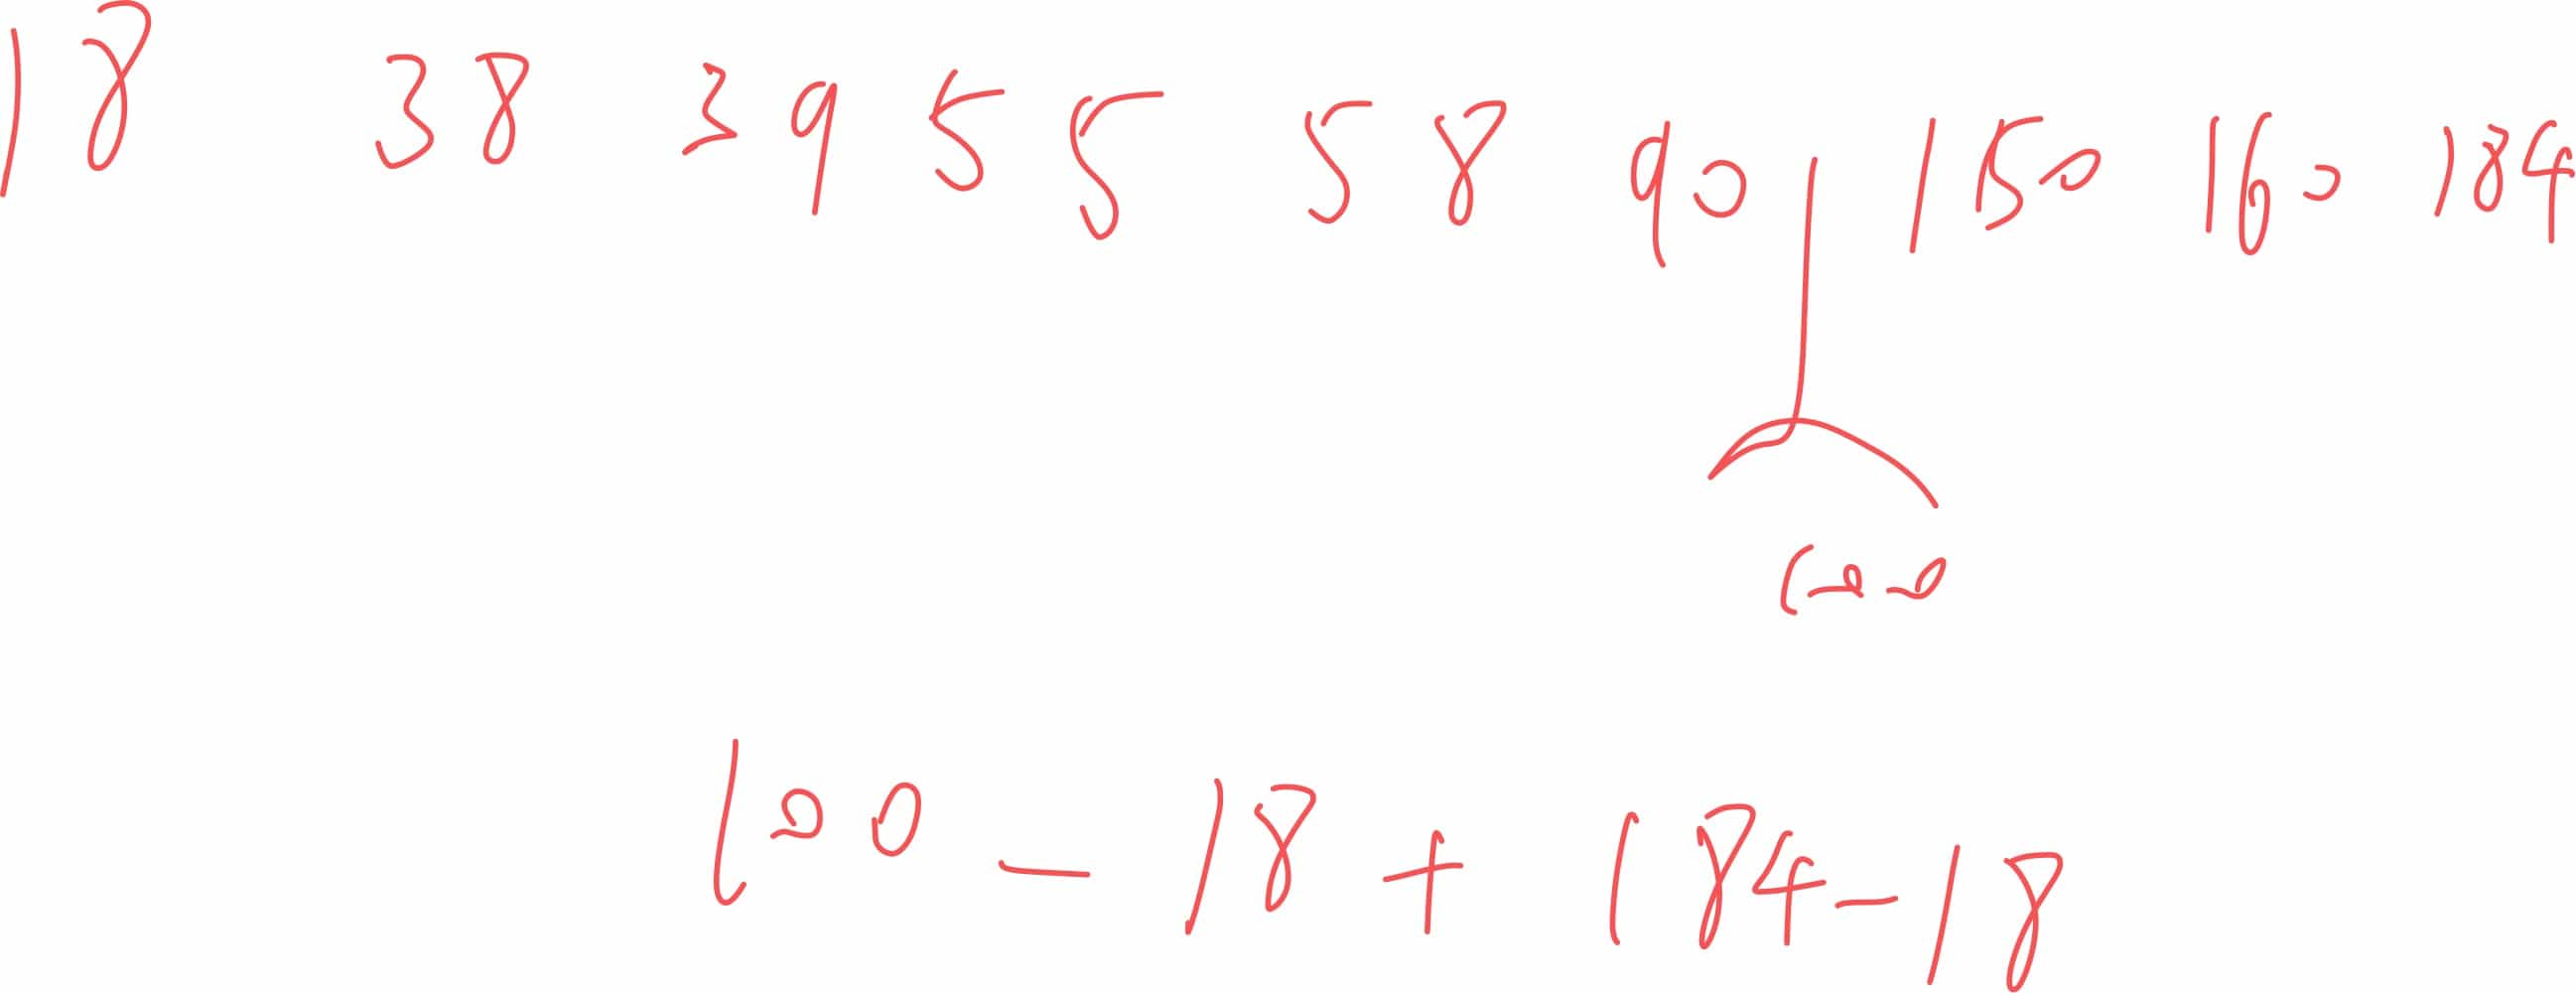 18 38 39 55 58 90 150 160 184
100
100 - 18 + 184 - 18